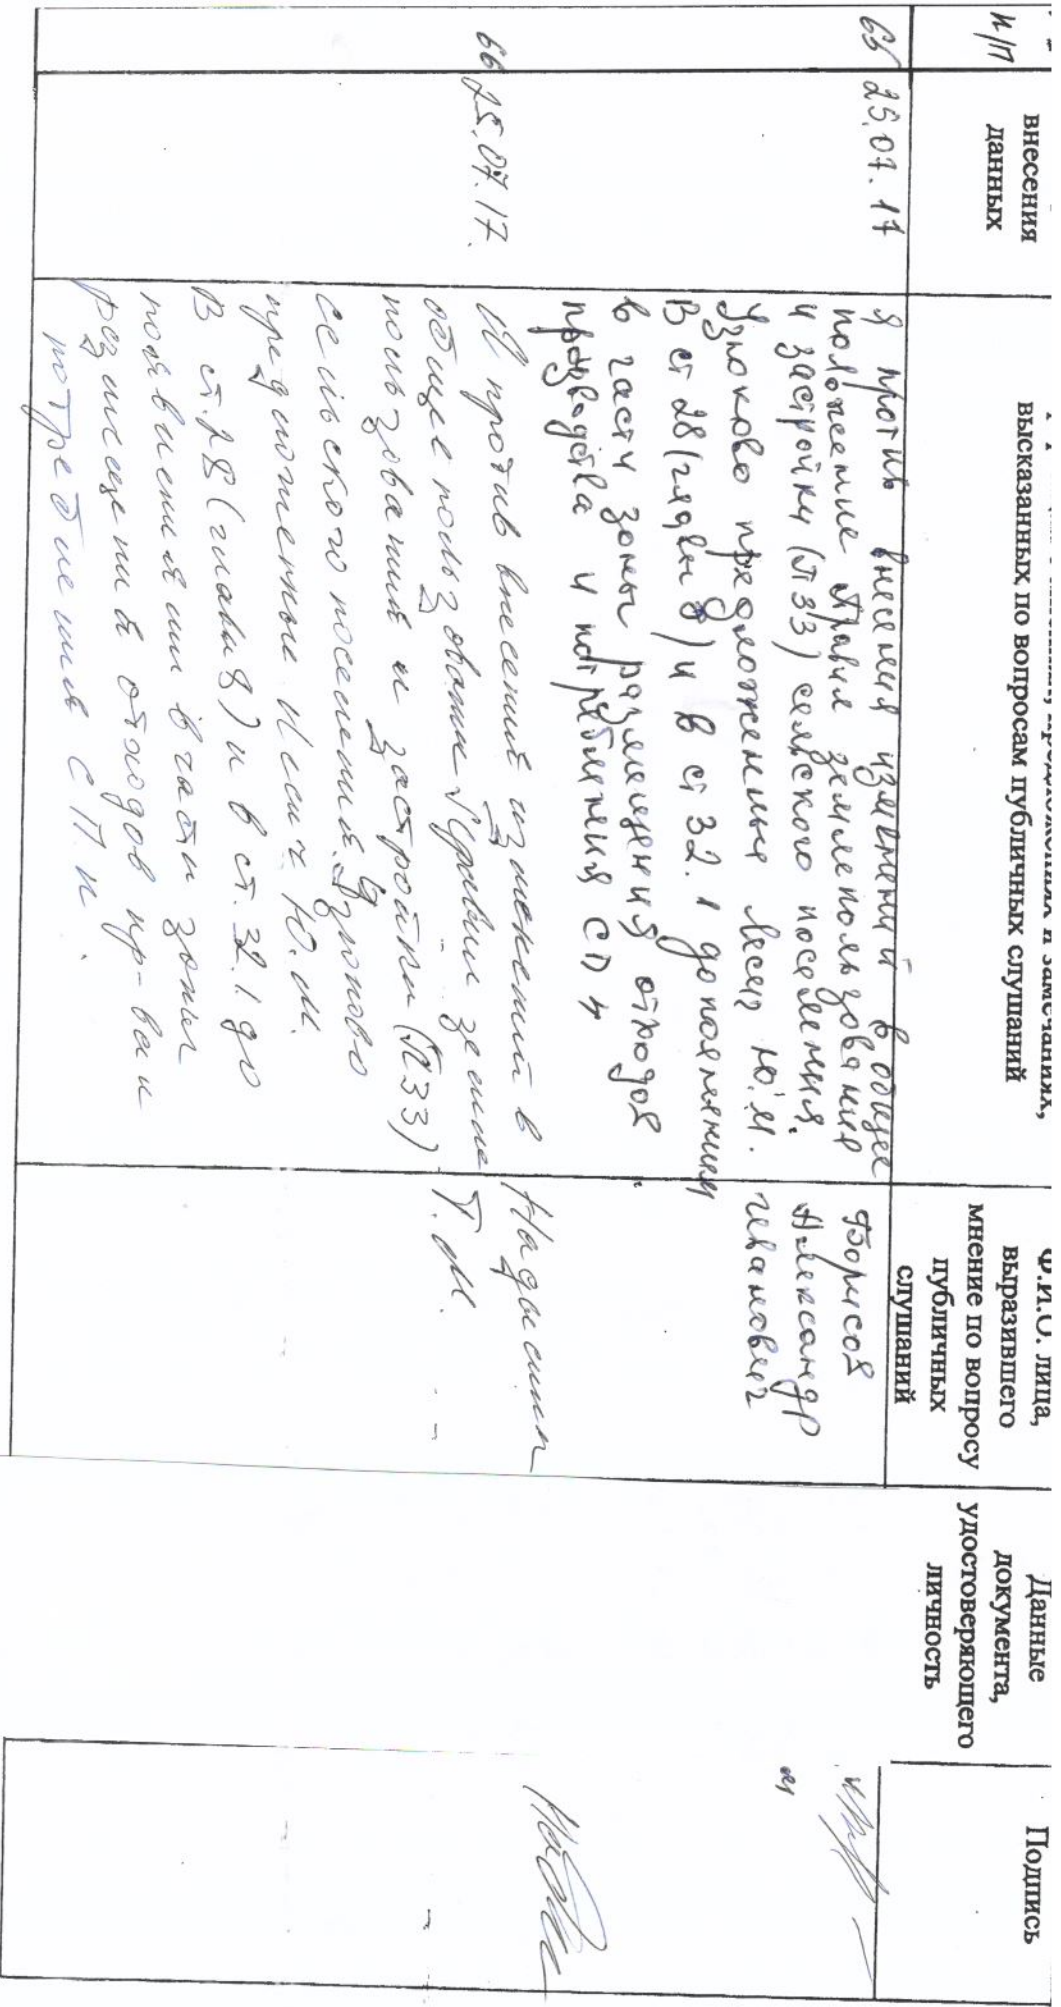 п/п
внесения
данных
высказанных по вопросам публичных слушаний
Ф.И.О. лица,
выразившего
мнение по вопросу
публичных
слушаний
Данные
документа,
удостоверяющего
личность
Подпись
65
25.07.17
Я против внесения изменений в общее
положение Правил землепользования
и застройки (ПЗЗ) сельского поселения
Узюково предложенных Юм.
В ст 28 (глава 8) и в ст 32.1 дополнением
в части зоны размещения отходов
производства и потребления СП 4
Борисов
Александр
Иванович
66
25.07.17.
Я против внесения изменений в
общее пользовании Правил земле
пользование и застройки (ПЗЗ)
сельского поселения Узюково
предложенные Ю.М.
В ст. 28 (глава 8) и в ст. 32.1. до
в части зоны
размещения отходов пр-ва и
потребления СП.
Т.М.